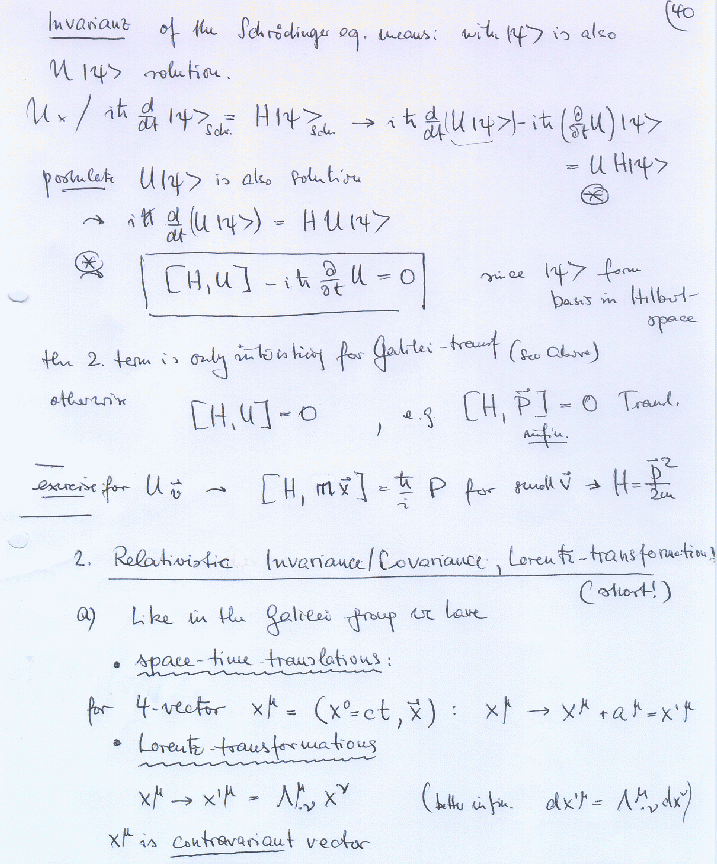 (40
Invarianz of the Schrödinger eq. means: with |ψ> is also
U|ψ> solution.
U× / iħ d/dt |ψ>Sch. = H|ψ>Sch. → iħ d/dt (U|ψ>) - iħ (∂/∂t U)|ψ>
= U H|ψ>
postulate U|ψ> is also solution
⊛
→ iħ d/dt (U|ψ>) = H U|ψ>
⊛ [H,U] - iħ ∂/∂t U = 0 since |ψ> form
basis in Hilbert-
space
the 2. term is only interesting for Galilei-transf (see above)
otherwise [H,U] = 0 , e.g [H, P⃗] = 0 Transl.
infin.
exercise: for U v⃗ → [H, m x⃗] = ħ/i P for small v⃗ → H = p⃗²/2m
2. Relativistic Invariance/Covariance, Lorentz-transformation!
(short!)
a) Like in the Galilei group we have
• space-time-translations:
for 4-vector x^μ = (x⁰=ct, x⃗) : x^μ → x^μ + a^μ = x'^μ
• Lorentz-transformations
x^μ → x'^μ = Λ^μ_.ν x^ν (better infin. dx'^μ = Λ^μ_.ν dx^ν)
x^μ is contravariant vector